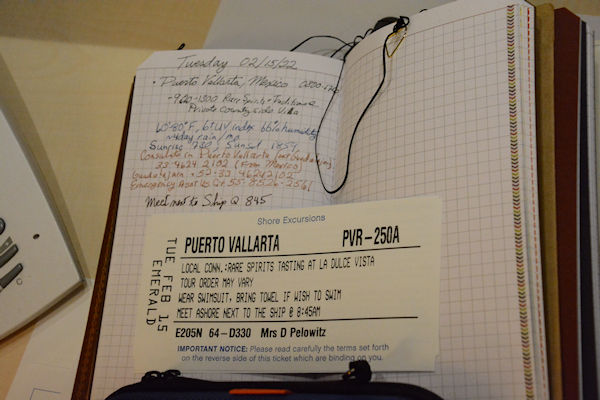 Tuesday 02/15/22
• Puerto Vallarta, Mexico 0800-
- 920-1300 Rare Spirits - Traditional
Private Countryside Villa
60°-80°F, 6 UV index 66% humidity
~4day rain/mo
Sunrise 720, Sunset 1859
Consulate in Puerto Vallarta
33-4624 2102 (From Mexico)
Guadalajara +52-33 46242102
Emergency 55-8526-2561
Meet next to Ship @ 845
Shore Excursions
PUERTO VALLARTA PVR-250A
LOCAL CONN.:RARE SPIRITS TASTING AT LA DULCE VISTA
TOUR ORDER MAY VARY
WEAR SWIMSUIT, BRING TOWEL IF WISH TO SWIM
MEET ASHORE NEXT TO THE SHIP @ 8:45AM
E205N 64-D330 Mrs D Pelowitz
IMPORTANT NOTICE: Please read carefully the terms set forth
on the reverse side of this ticket which are binding on you.
TUE FEB 15
EMERALD